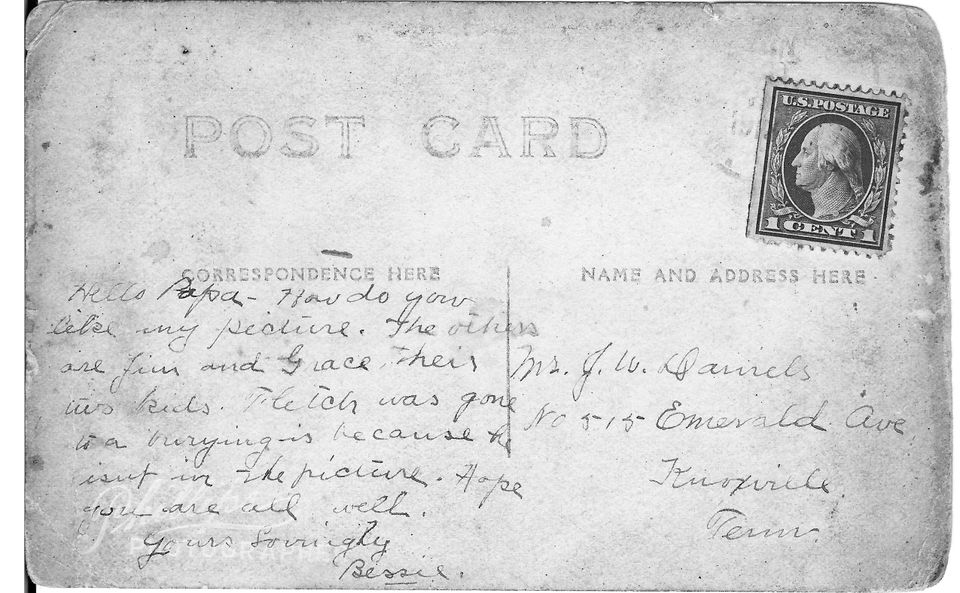 POST CARD
U.S. POSTAGE
1 CENT 1
CORRESPONDENCE HERE
Hello Papa - How do you
like my picture. The others
are Jim and Grace, their
two kids. Fletch was gone
to a burying is because he
isnt in the picture. Hope
you are all well.
Yours Lovingly
Bessie.
NAME AND ADDRESS HERE
Mr. J. W. Daniels
No 515 Emerald Ave
Knoxville.
Tenn.